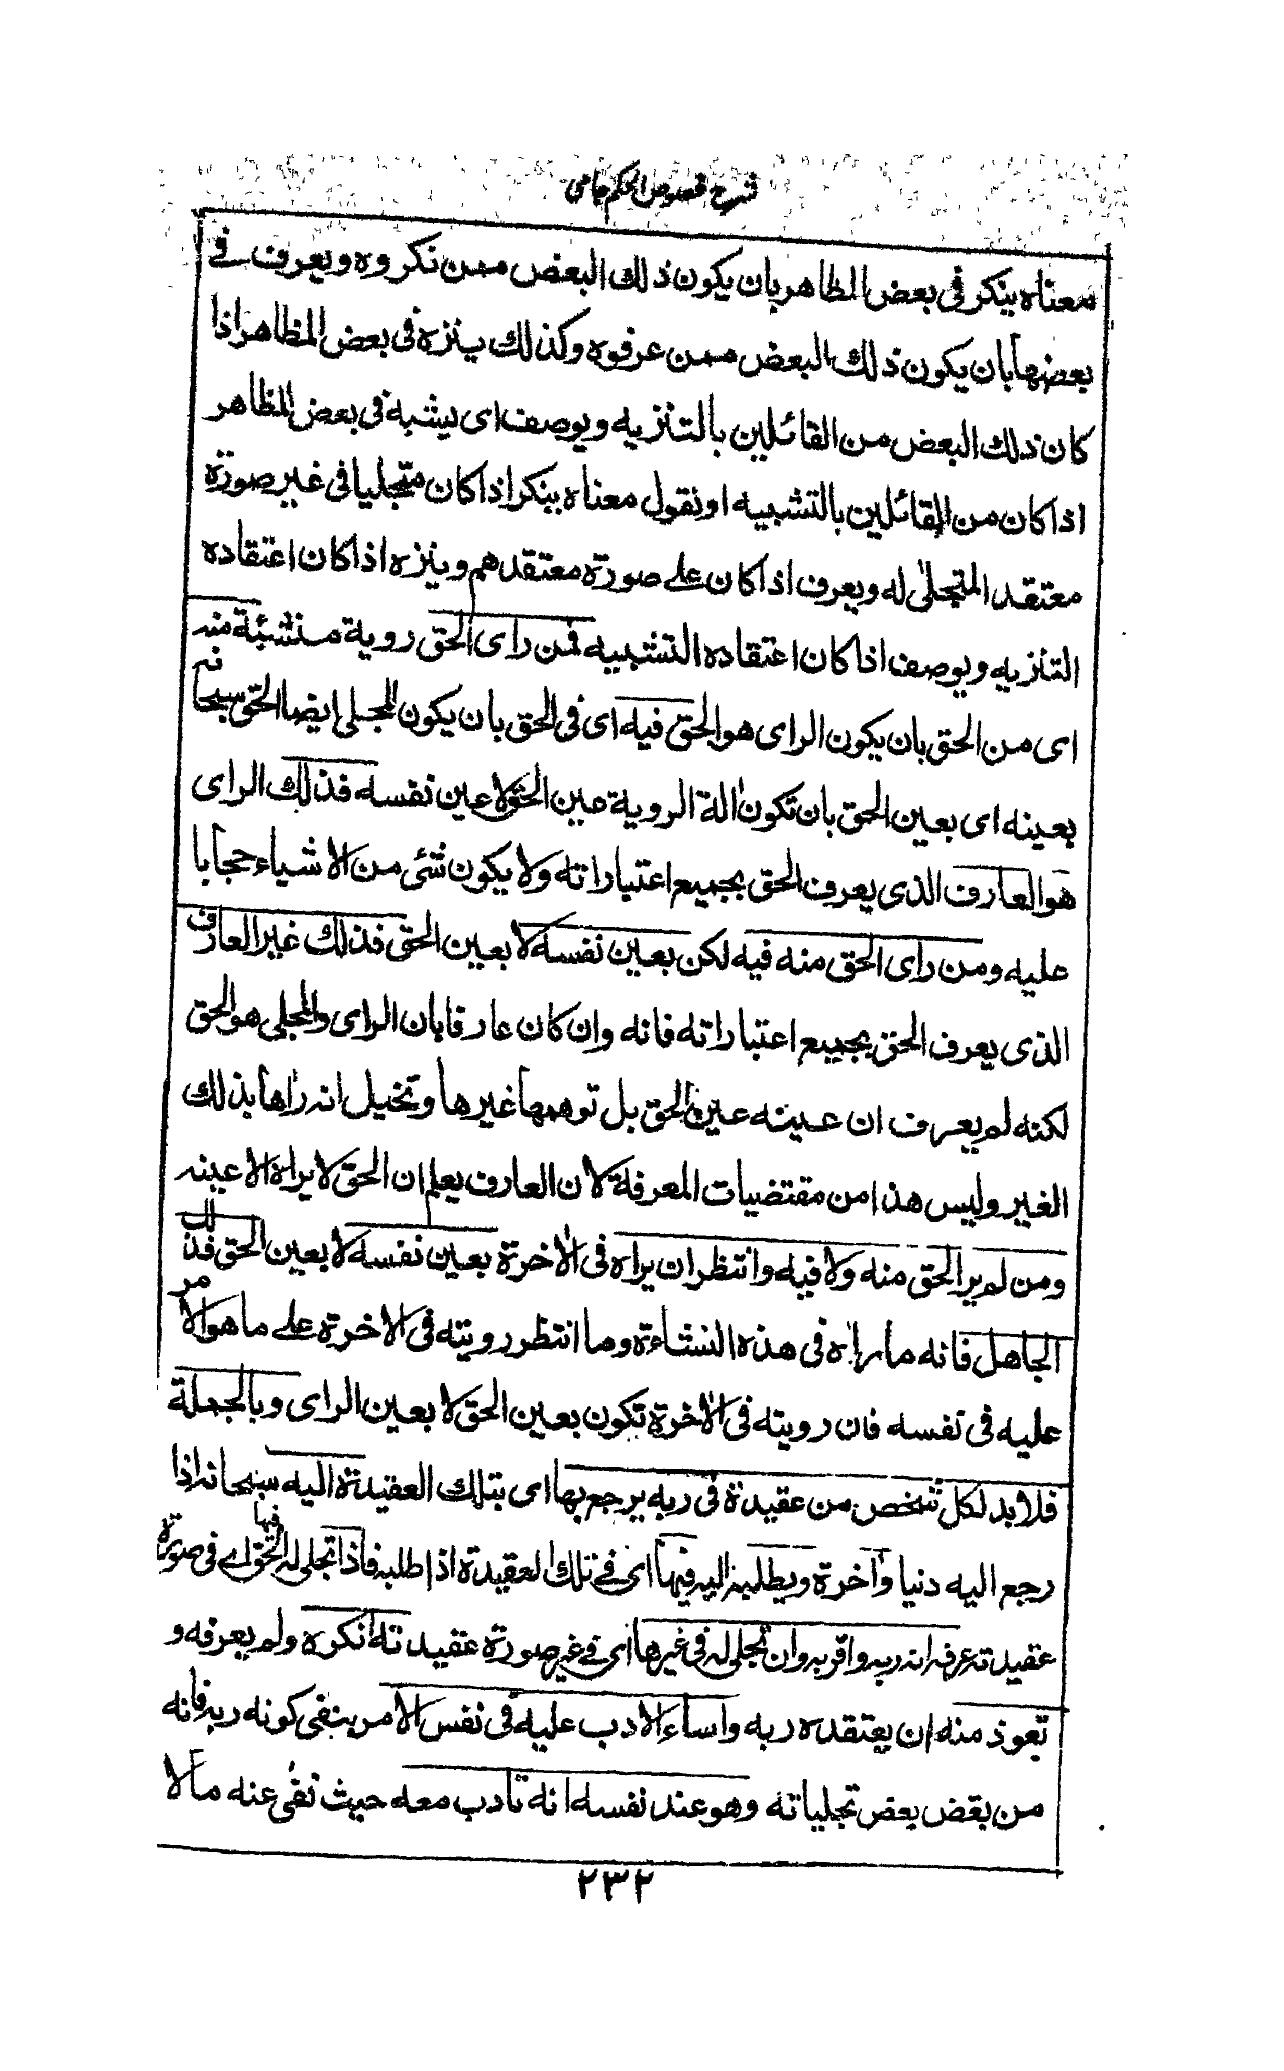 شرح فصوص الحکم جامی
معناه ینکر فی بعض المظاهر بان یکون ذلك البعض ممن نکروه ویعرف فے
بعضها بان یکون ذلك البعض ممن عرفوه وکذلك ینزه فی بعض المظاهر اذا
کان ذلك البعض من القائلین بالتنزیه ویوصف ای یشبه فی بعض المظاهر
اذا کان من القائلین بالتشبیه او نقول معناه ینکر اذا کان متجلیا فی غیر صورة
معتقد المتجلی له ویعرف اذا کان علے صورة معتقدهم وینزه اذا کان اعتقاده
التنزیه ویوصف اذا کان اعتقاده التشبیه فمن رای الحق رویة منشئة منه
ای من الحق بان یکون الرای هو الحق فیه ای فی الحق بان یکون المجلی ایضا الحق سبحانه
بعینه ای بعین الحق بان تکون الة الرویة عین الحق لا عین نفسه فذلك الرای
هو العارف الذی یعرف الحق بجمیع اعتباراته ولا یکون شئ من الاشیاء حجابا
علیه ومن رای الحق منه فیه لکن بعین نفسه لا بعین الحق فذلك غیر العارف
الذی یعرف الحق بجمیع اعتباراته فانه وان کان عارفا بان الرای والمجلی هو الحق
لکنه لم یعرف ان عینه عین الحق بل توهمها غیرها وتخیل انه راها بذلك
الغیر ولیس هذا من مقتضیات المعرفة لان العارف یعلم ان الحق لا یراه الا عینه
ومن لم یر الحق منه ولا فیه وانتظر ان یراه فی الاخرة بعین نفسه لا بعین الحق فذلك
الجاهل فانه ما راه فی هذه النشاءة وما انتظر رویته فی الاخرة علے ما هو الامر
علیه فی نفسه فان رویته فی الاخرة تکون بعین الحق لا بعین الرای وبالجملة
فلا بد لکل شخص من عقیدة فی ربه یرجع بها ای بتلك العقیدة الیه سبحانه اذا
رجع الیه دنیا وآخرة ویطلبه فیها ای فے تلك العقیدة اذا طلبه فاذا تجلی له الحق فیها اے فی صورة
عقیدته عرفه انه ربه واقر به وان تجلی له فی غیرها ای فے غیر صورة عقیدته انکره ولم یعرفه و
تعوذ منه ان یعتقده ربه واساء الادب علیه فی نفس الامر بنفی کونه ربه فانه
من بعض تجلیاته وهو عند نفسه انه تادب معه حیث نفی عنه ما لا
٢٣٢